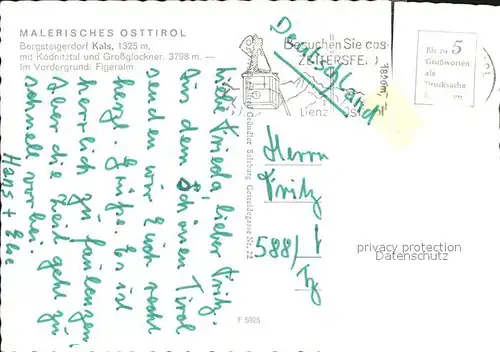 MALERISCHES OSTTIROL
Bergsteigerdorf Kals, 1325 m,
mit Ködnitztal und Großglockner, 3798 m. —
Im Vordergrund: Figeralm
Liebe Frieda, lieber Fritz.
Aus dem schönen Tirol
senden wir Euch recht
herzl. Grüße. Es ist
herrlich zu faulenzen
Aber die Zeit geht zu
schnell vorbei.
Hans + Else
Besuchen Sie das
ZETTERSFELD
1820m
Lienz Osttirol
Deutschland
Bis zu 5
Grußworten
als
Drucksache
Salzburg, Getreidegasse Nr. 22
Herrn
Fritz
588/1
F 5925
privacy protection
Datenschutz